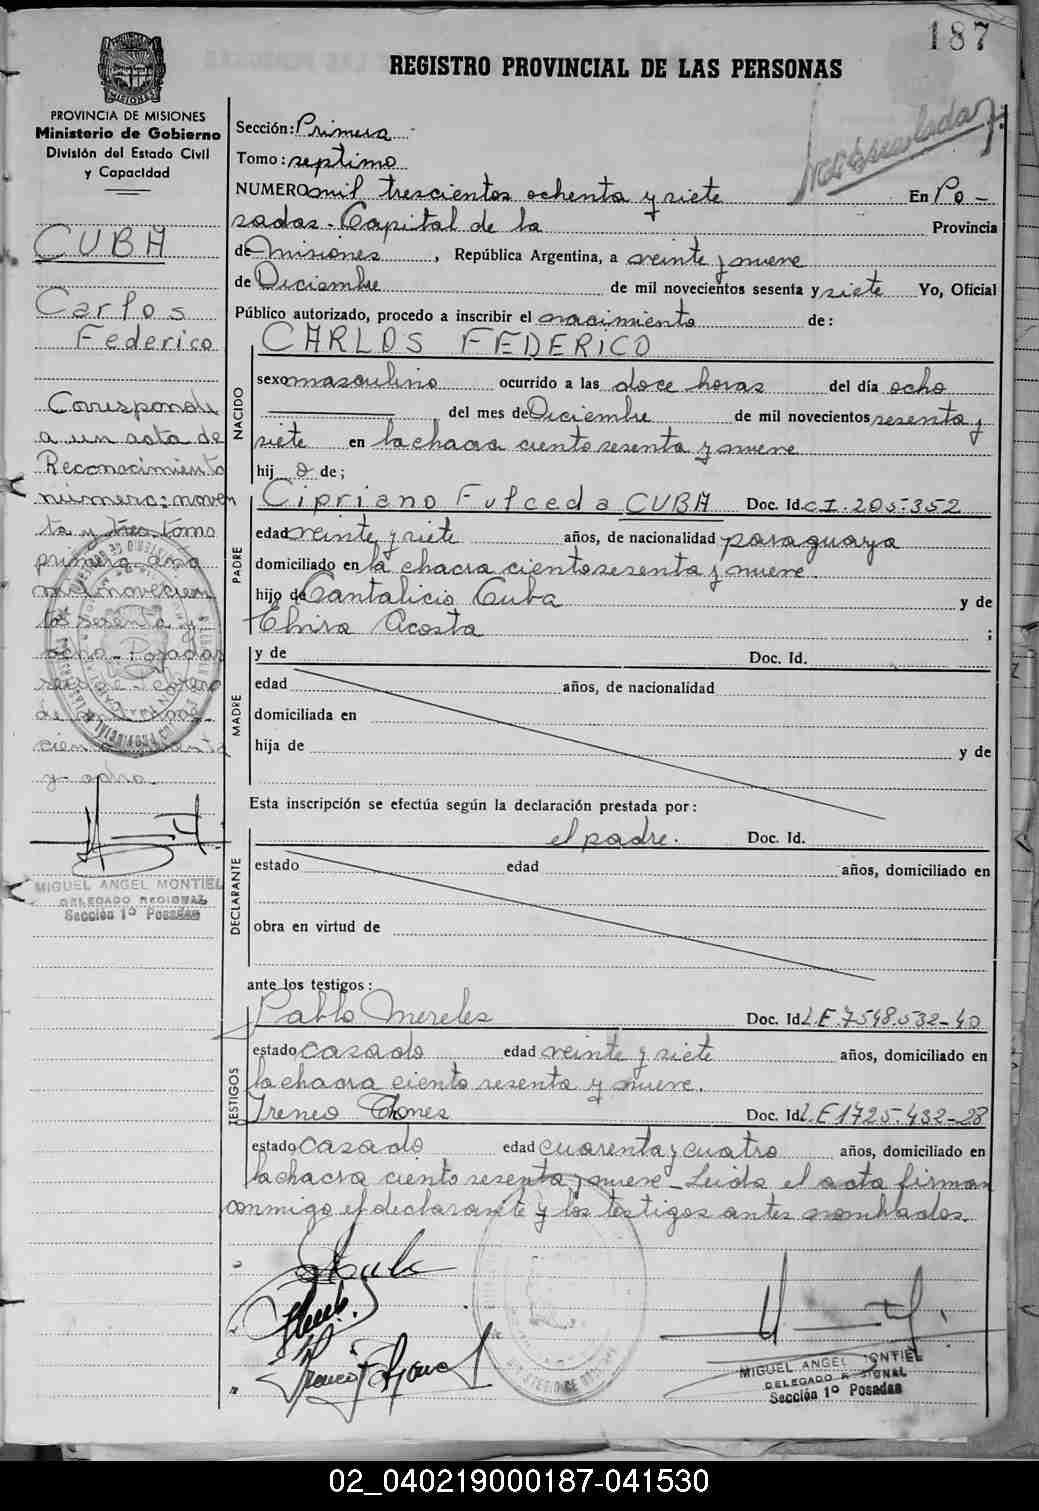 187
REGISTRO PROVINCIAL DE LAS PERSONAS
MISIONES
PROVINCIA DE MISIONES
Ministerio de Gobierno
División del Estado Civil
y Capacidad
CUBA
Carlos
Federico
Corresponde
a un acta de
Reconocimiento
número: noven
ta y tres tomo
primero año
mil novecien
tos sesenta y
ocho - Posadas
de
y ocho.
MIGUEL ANGEL MONTIEL
DELEGADO REGIONAL
Sección 1º Posadas
Sección: Primera
Tomo: septimo
NUMERO mil trescientos ochenta y siete En Po-
sadas - Capital de la Provincia
de Misiones, República Argentina, a veinte y nueve
de Diciembre de mil novecientos sesenta y siete Yo, Oficial
Público autorizado, procedo a inscribir el nacimiento de:
NACIDO
CARLOS FEDERICO
sexo masculino ocurrido a las doce horas del día ocho
del mes de Diciembre de mil novecientos sesenta y
siete en la chacra ciento sesenta y nueve
hij o de;
PADRE
Cipriano Fulceda CUBA Doc. Id. C.I. 205.352
edad veinte y siete años, de nacionalidad paraguaya
domiciliado en la chacra ciento sesenta y nueve
hijo de Cantalicio Cuba y de
Elvira Acosta ;
MADRE
y de Doc. Id.
edad años, de nacionalidad
domiciliada en
hija de y de
Esta inscripción se efectúa según la declaración prestada por:
DECLARANTE
el padre. Doc. Id.
estado edad años, domiciliado en
obra en virtud de
ante los testigos:
TESTIGOS
Pablo Mereles Doc. Id. L.E. 7548.532-40
estado casado edad veinte y siete años, domiciliado en
la chacra ciento sesenta y nueve.
Ireneo Doc. Id. L.E 1725.432-28
estado casado edad cuarenta y cuatro años, domiciliado en
la chacra ciento sesenta y nueve - Leida el acta firman
conmigo el declarante y los testigos antes nombrados.
MIGUEL ANGEL MONTIEL
DELEGADO REGIONAL
Sección 1º Posadas
02_040219000187-041530